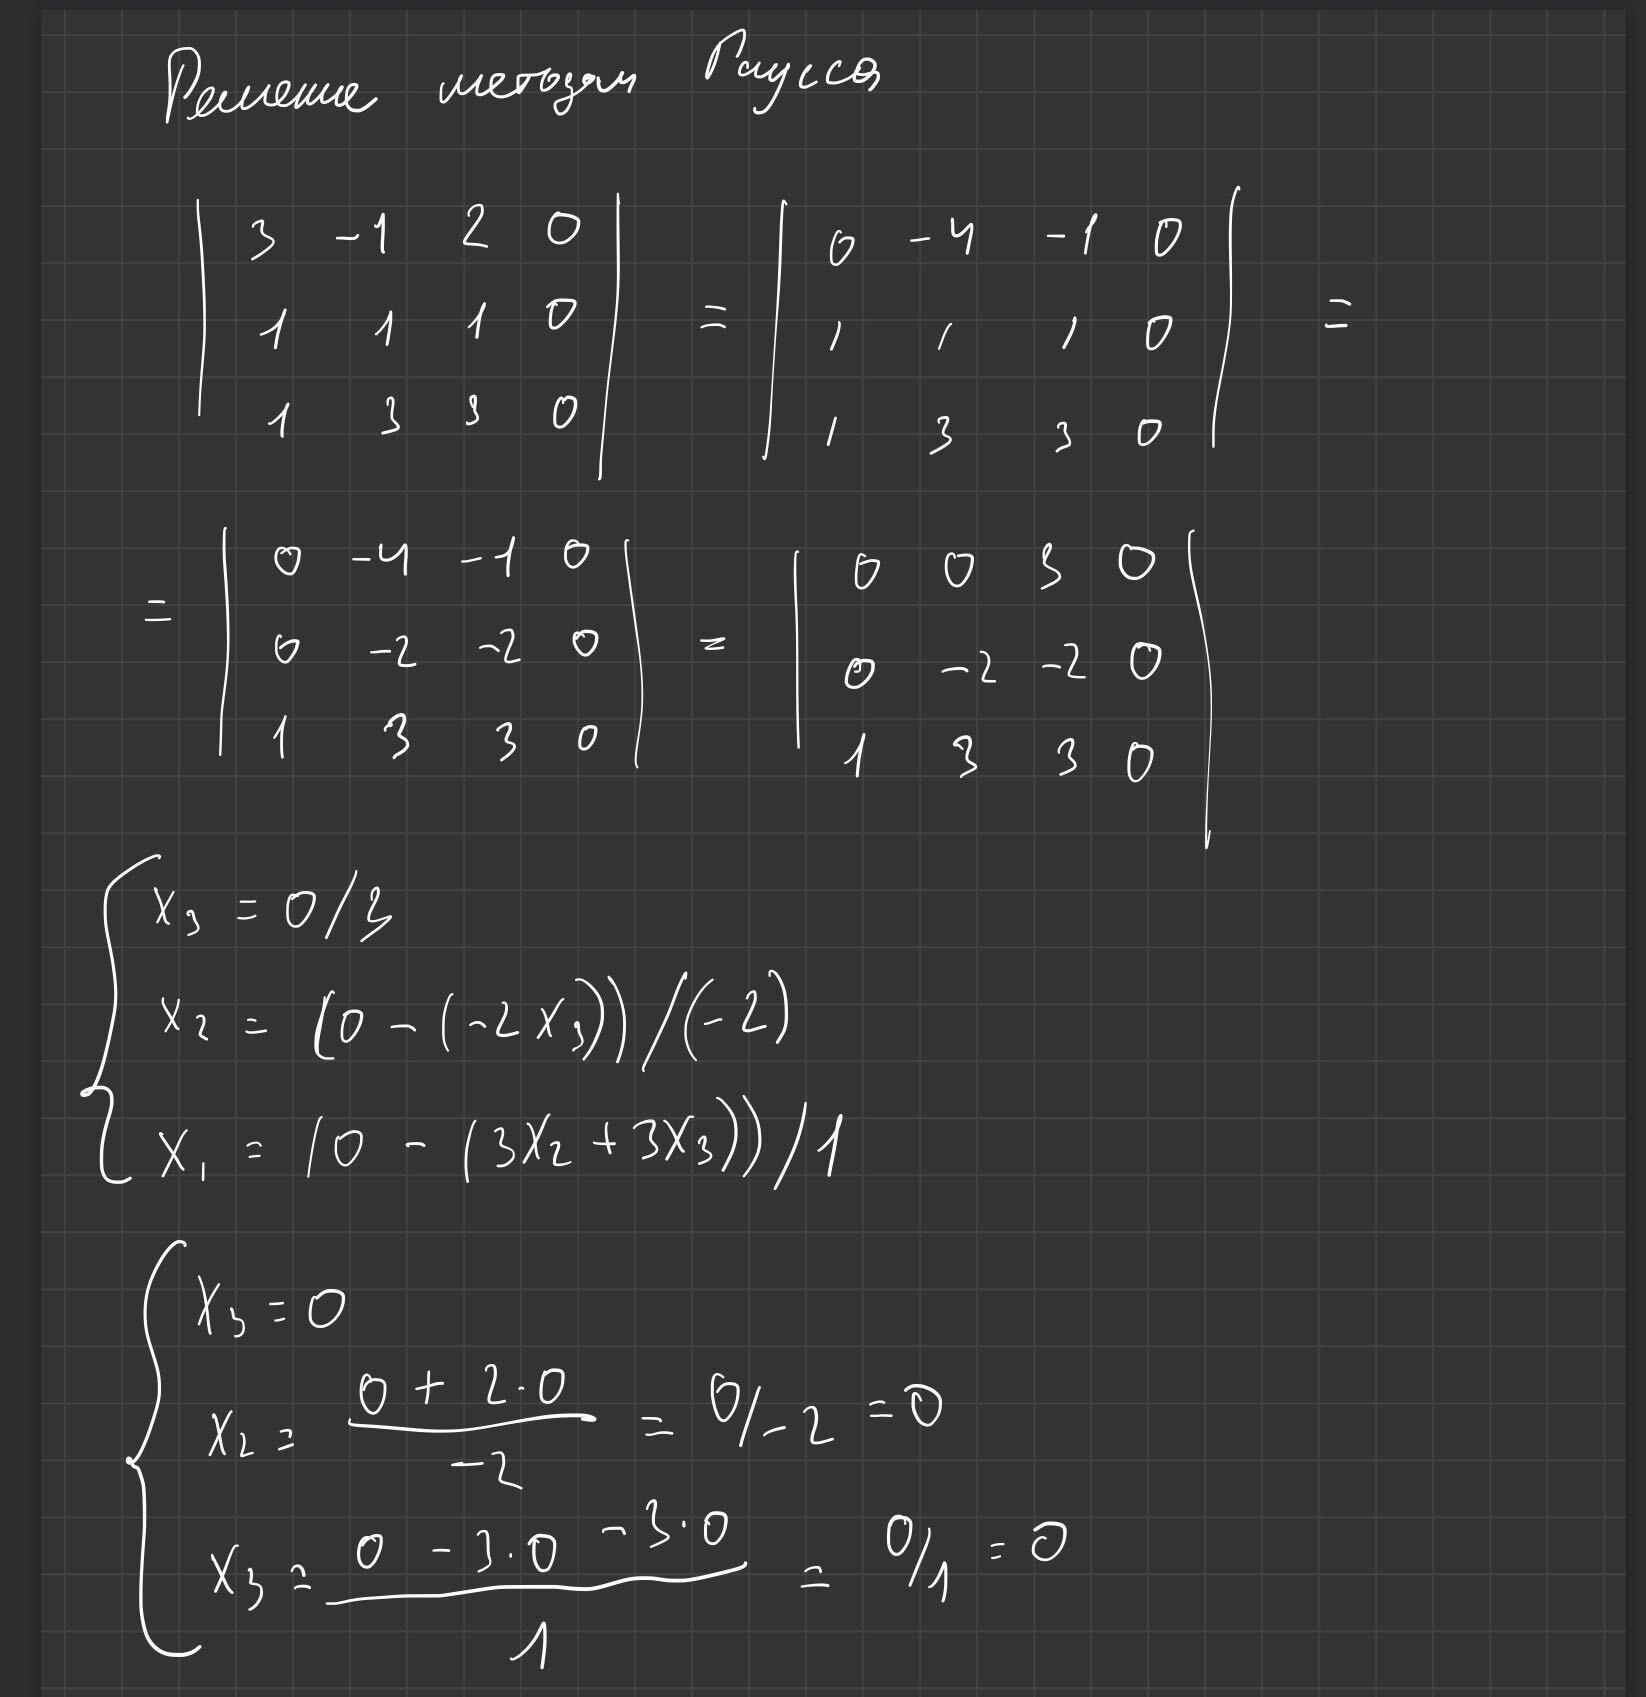 Решение методом Гаусса
| 3 -1 2 0 | = | 0 -4 -1 0 | =
| 1 1 1 0 | | 1 1 1 0 |
| 1 3 3 0 | | 1 3 3 0 |
= | 0 -4 -1 0 | = | 0 0 3 0 |
| 0 -2 -2 0 | | 0 -2 -2 0 |
| 1 3 3 0 | | 1 3 3 0 |
{ x₃ = 0/3
x₂ = (0 - (-2x₃))/(-2)
x₁ = (0 - (3x₂ + 3x₃))/1
{ x₃ = 0
x₂ = (0 + 2·0)/-2 = 0/-2 = 0
x₃ = (0 - 3·0 - 3·0)/1 = 0/1 = 0